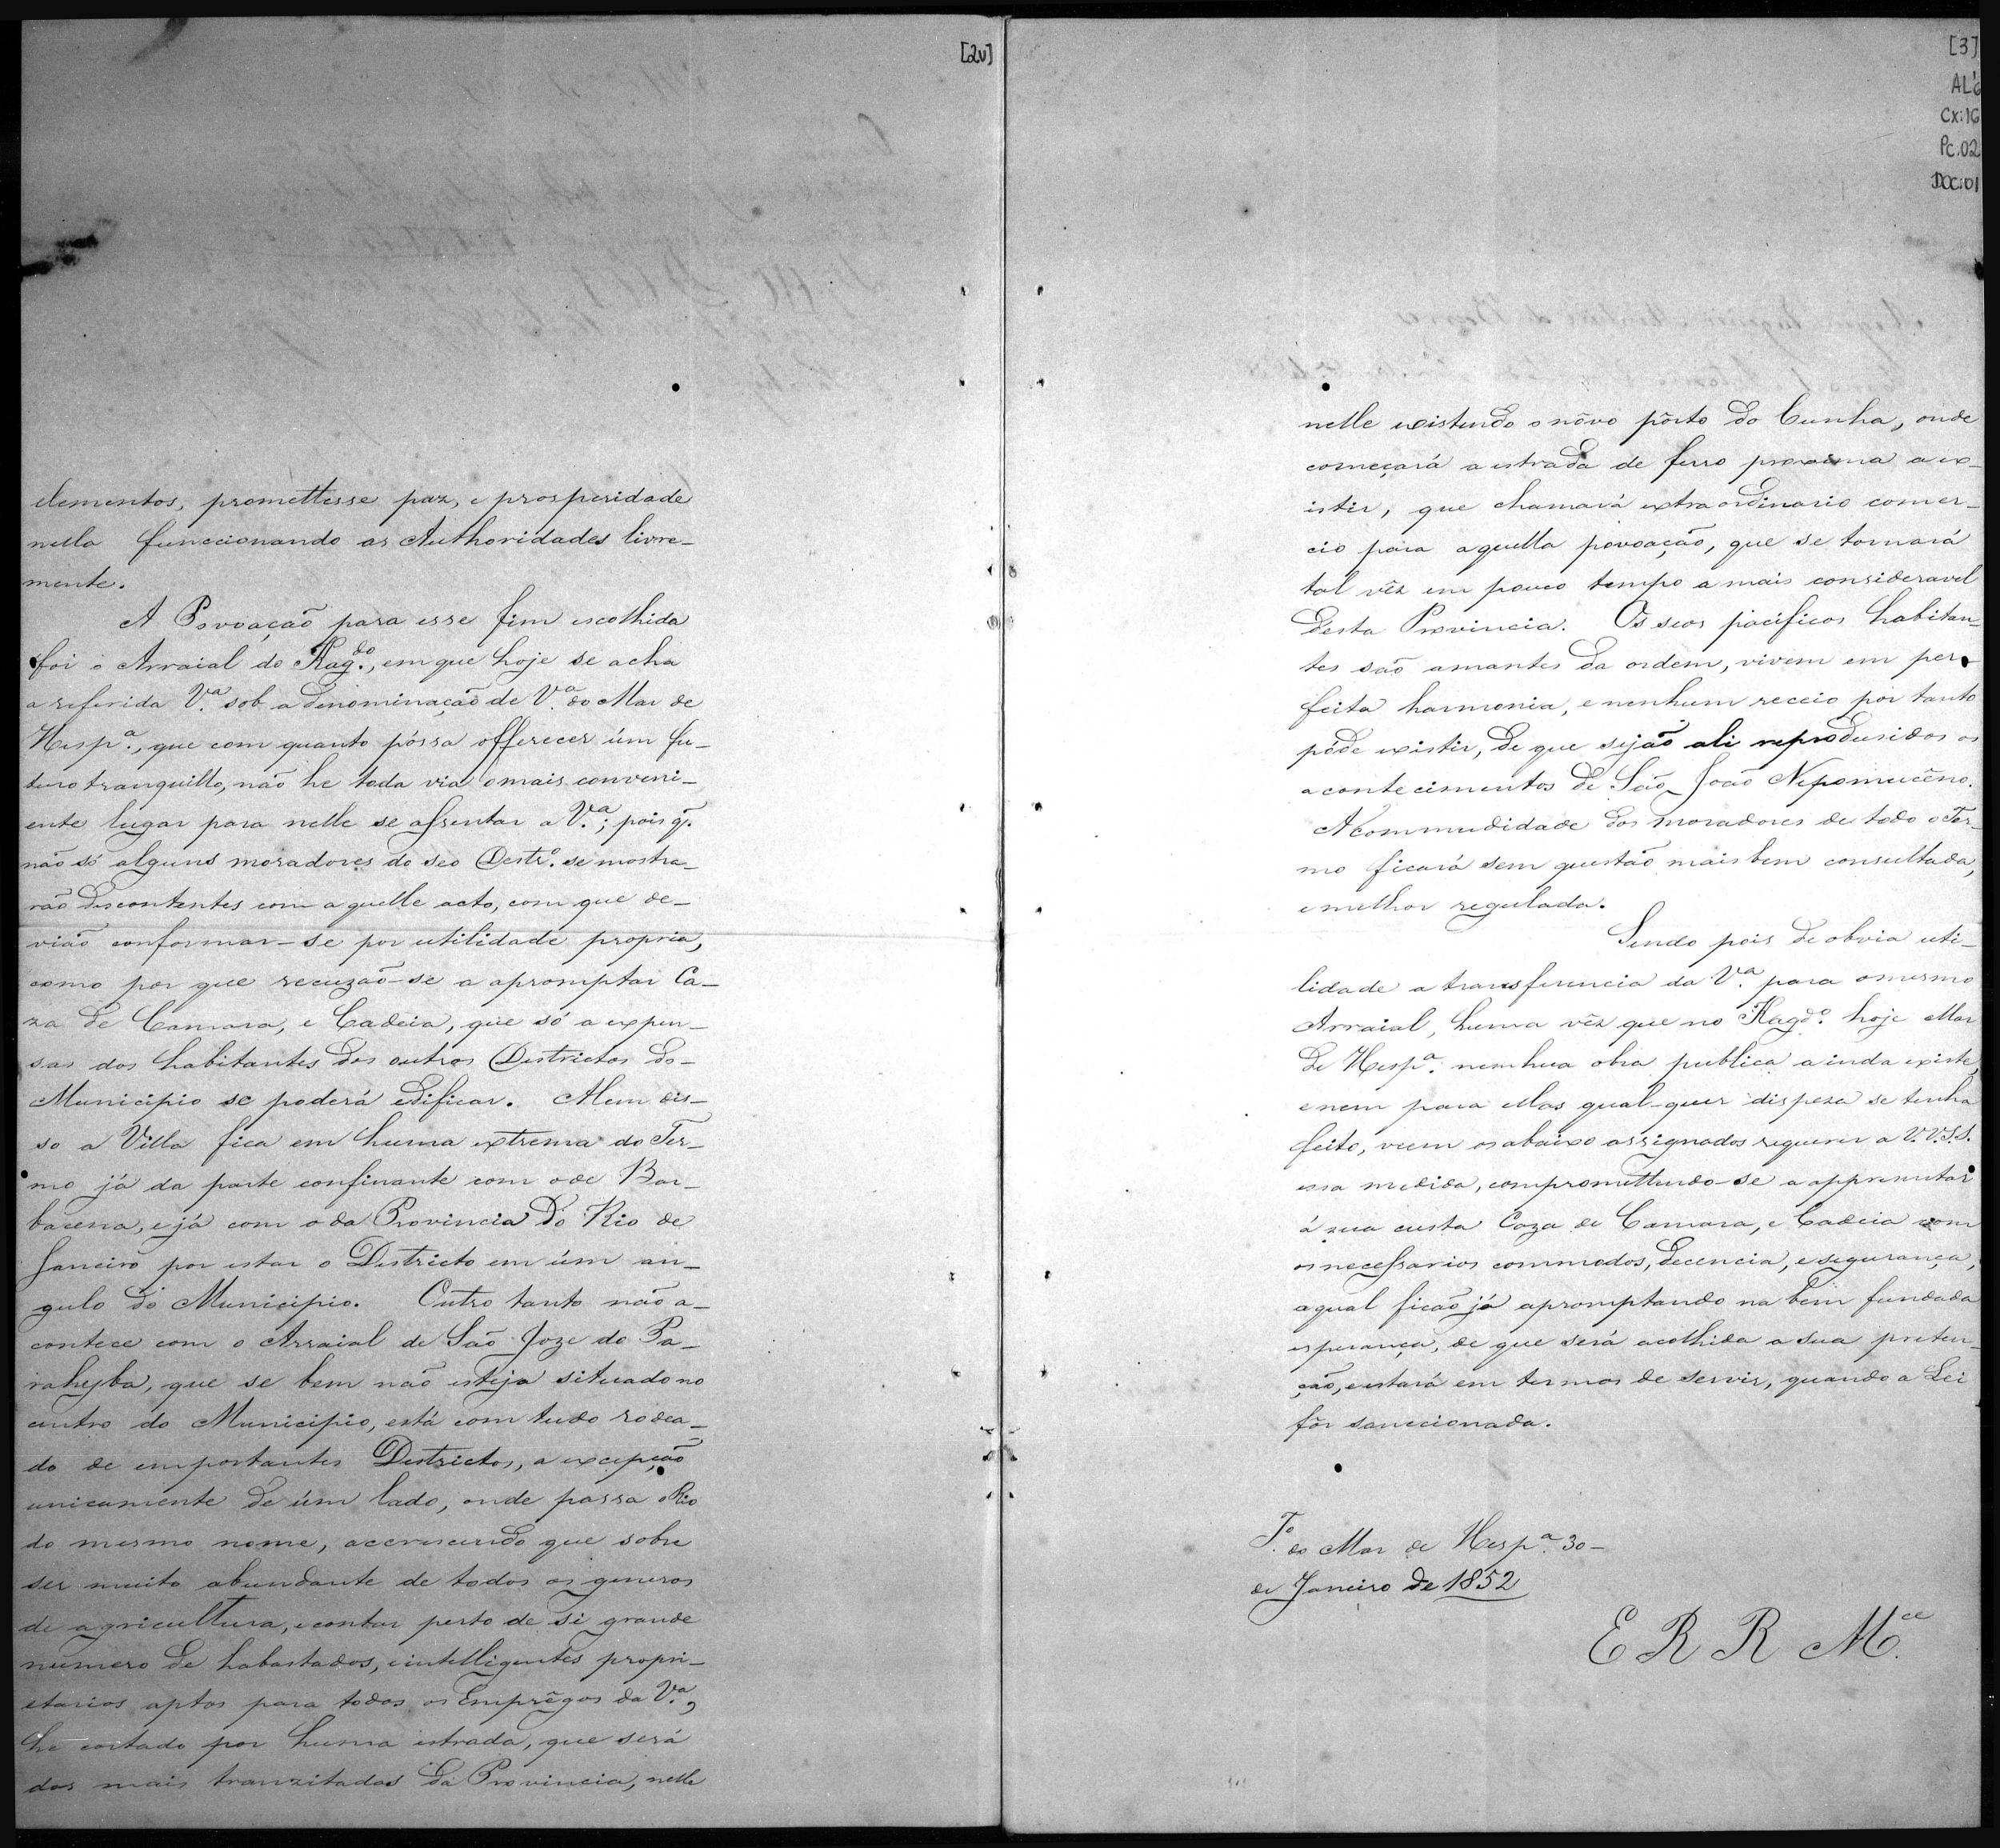 [2v]
elementos, promettesse paz, e prosperidade
nella funccionando as Authoridades livre-
mente.
A Povoação para esse fim escolhida
foi o Arraial do Kag.do, em que hoje se acha
a referida V.a sob a denominação de V.a do Mar de
Hesp.a, que com quanto póssa offerecer úm fu-
turo tranquillo, não he toda via o mais conveni-
ente lugar para nelle se assentar a V.a; pois q.
não só alguns moradores do seo Destr.o se mostra-
rão descontentes com aquelle acto, com que de-
vião conformar-se por utilidade propria,
como por que recuzão-se a apromptar Ca-
za de Camara, e Cadeia, que só a expen-
sas dos habitantes dos outros Districtos do-
Municipio se poderá edificar. Alem dis-
so a Villa fica em huma extrema do Ter-
mo já da parte confinante com o de Bar-
bacena, e já com o da Provincia do Rio de
Janeiro por estar o Districto em úm an-
gulo do Municipio. Outro tanto não a-
contece com o Arraial de São Joze do Pa-
rahyba, que se bem não esteja situado no
centro do Municipio, está com tudo rodea-
do de emportantes Districtos, a excepção
unicamente de úm lado, onde passa o Rio
do mesmo nome, accrescendo que sobre
ser muito abundante de todos os generos
de agricultura, e contar perto de si grande
numero de habastados, e intelligentes propri-
etarios aptos para todos os Emprêgos da V.a,
he cortado por huma estrada, que será
das mais tranzitadas da Provincia, nelle
[3]
AL6
Cx:16
Pc.02
DOC:01
nelle existindo o nôvo pôrto do Cunha, onde
começará a estrada de ferro proxima a ex-
istir, que chamará extraordinario comer-
cio para aquella povoação, que se tornará
tal vêz em pouco tempo a mais consideravel
desta Provincia. Os seos pacificos habitan-
tes são amantes da ordem, vivem em per-
feita harmonia, e nenhum receio por tanto
póde existir, de que sejão ali reprodusidos os
acontecimentos de São João Nepomucêno.
A commudidade dos moradores de todo o Ter-
mo ficará sem questão mais bem consultada,
e melhor regulada.
Sendo pois de obvia uti-
lidade a transferencia da V.a para o mesmo
Arraial, huma vêz que no Kagd.o hoje Mar
de Hesp.a nenhua obra publica ainda existe,
e nem para ellas qual-quer dispeza se tenha
feito, veem os abaixo assignados requerer a V.V.S.S.
essa medida, compromettendo-se a appresentar
á sua custa Caza de Camara, e Cadeia com
os necessarios commodos, decencia, e segurança,
a qual ficão já apromptando na bem fundada
esperança, de que será acolhida a sua preten-
ção, e estará em termos de servir, quando a Lei
fôr sanccionada.
T.o do Mar de Hesp.a 30-
de Janeiro de 1852
E R R M.ce